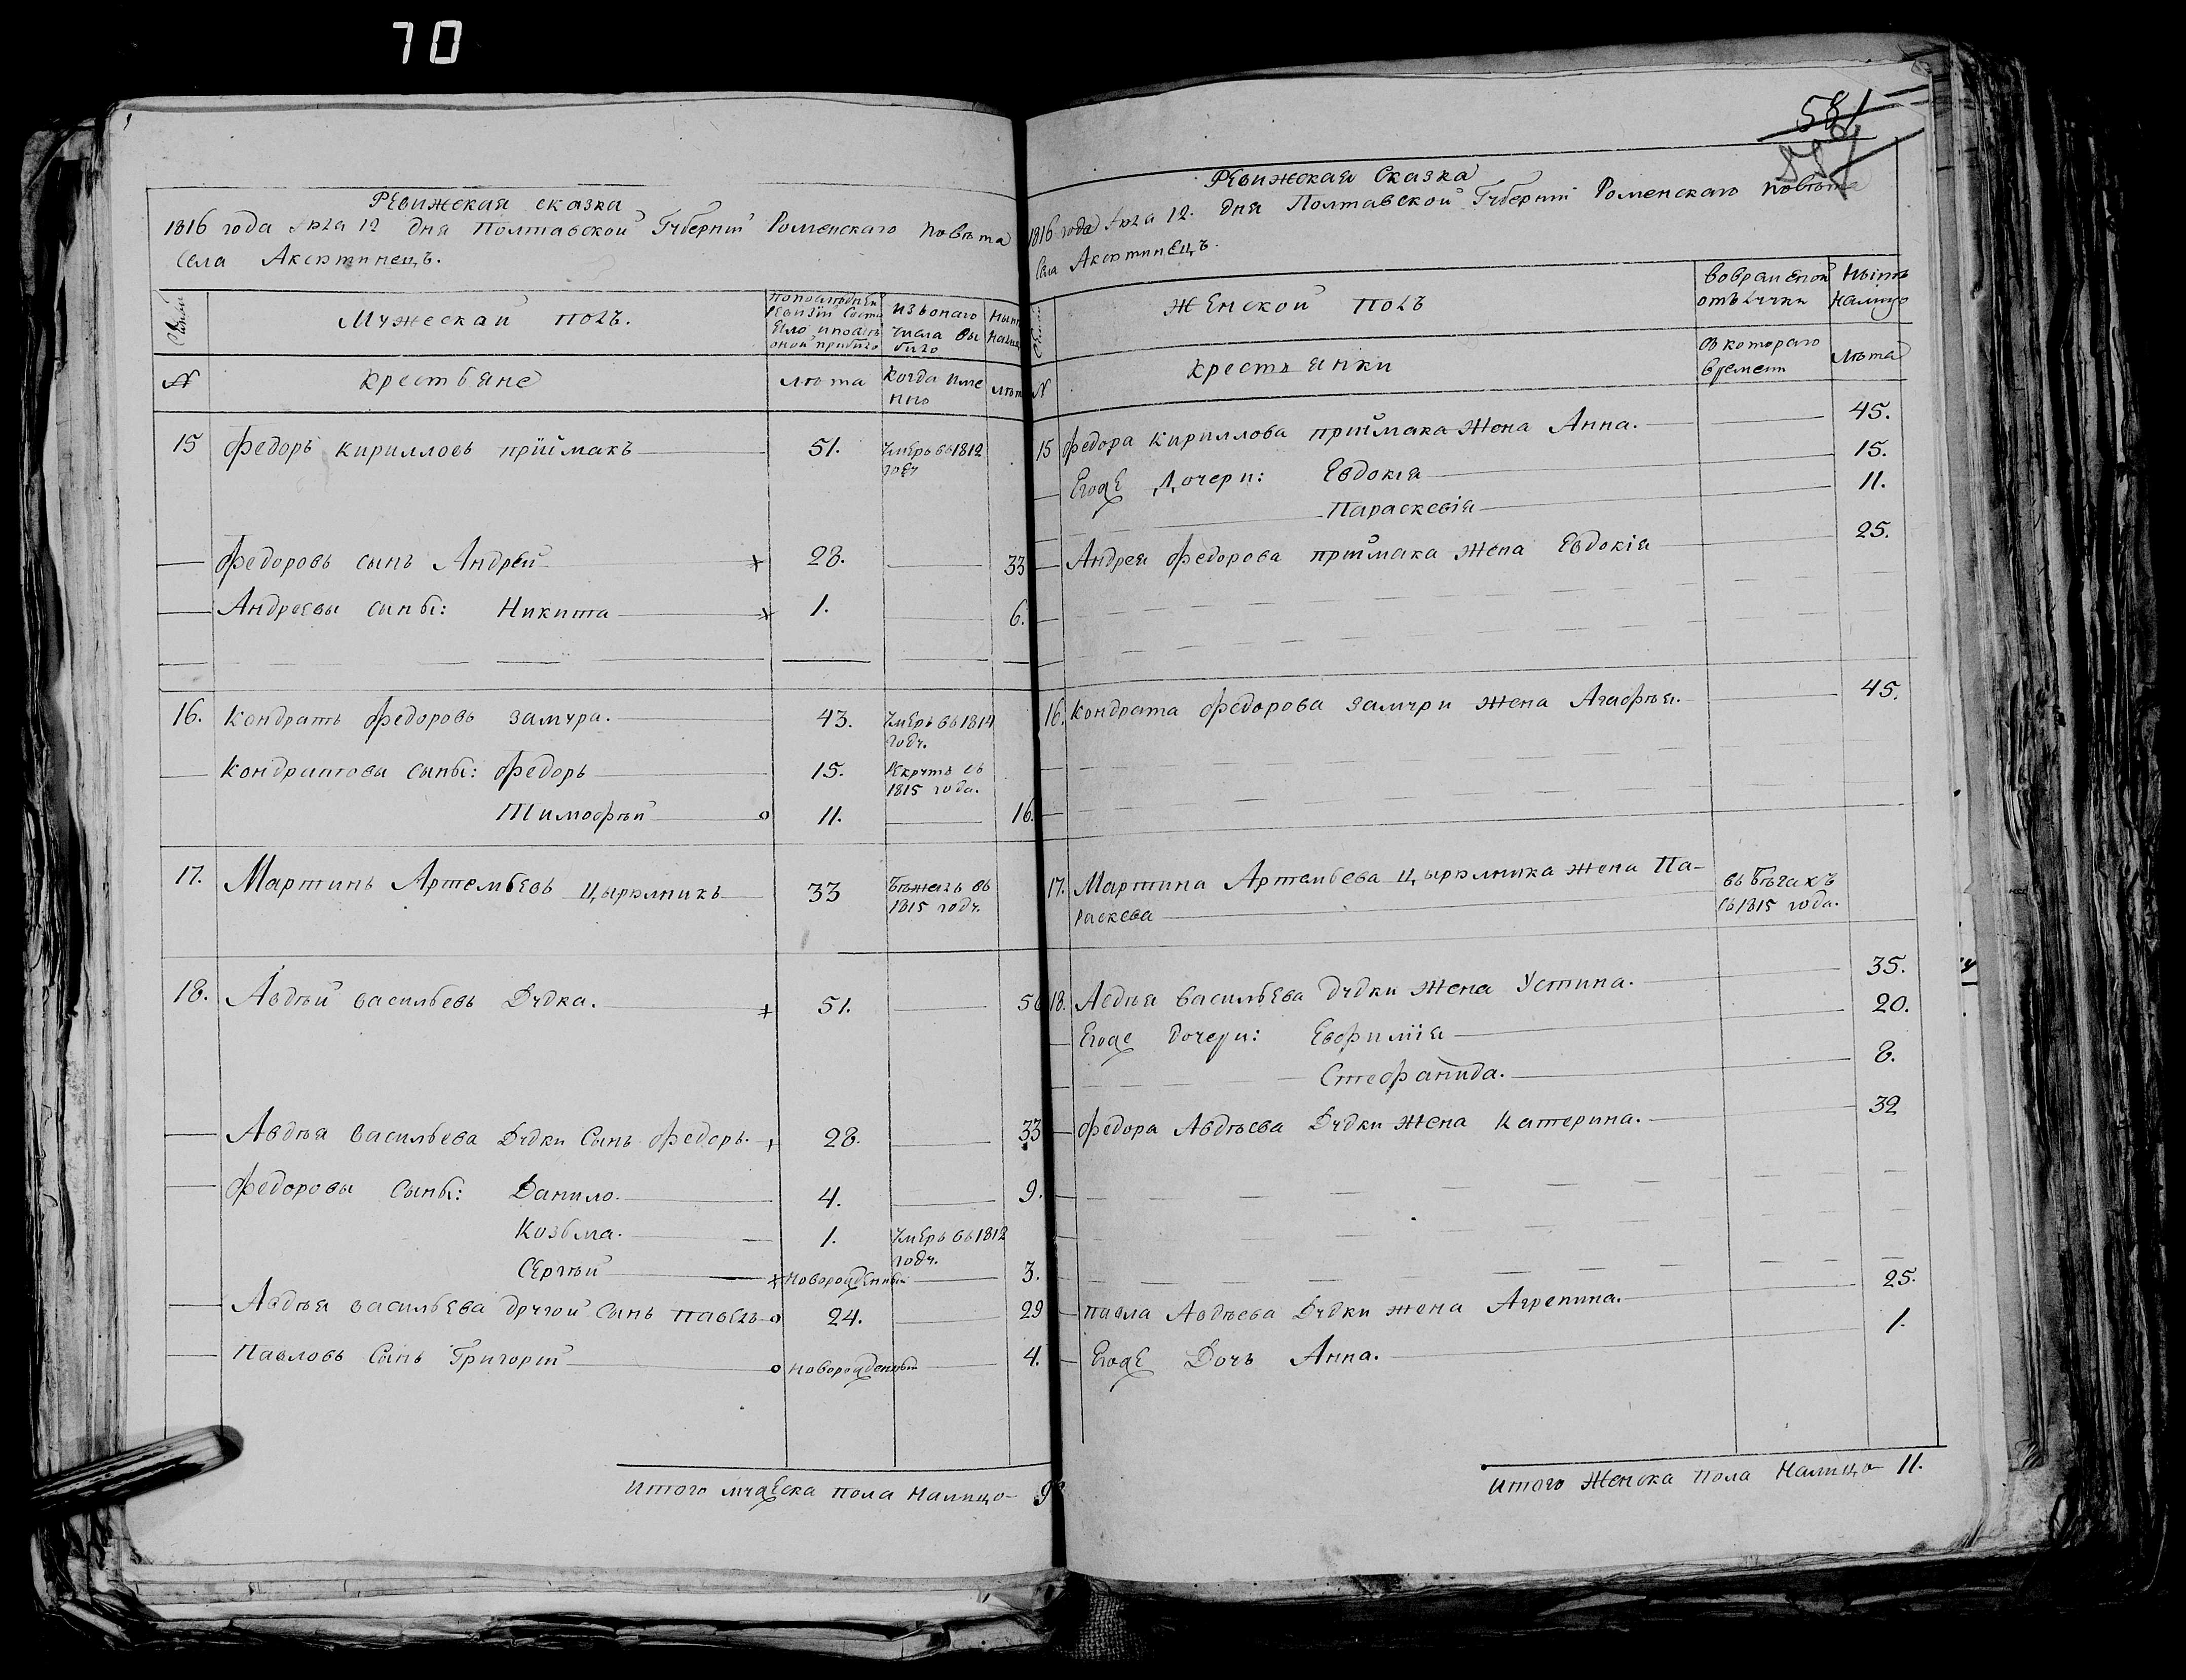 70
Ревижская сказка
1816 года Июля 12 дня Полтавской Губернїи Роменскаго повѣта
Села Аксютинецъ.
Семьи
Мужескай полъ.
По последнеи ревизїи состояло и после оной прибыло
Изъ онаго числа выбыло
Ныне налицо
№
Крестьяне
лѣта
Когда именно
лѣта
15 Федоръ Кириловъ Прїймакъ 51. Умеръ въ 1812 году
Федоровъ сынъ Андрей 28. 33
Андреевы сыны: Никита 1. 6.
16. Кондратъ Федоровъ Замура. 43. Умеръ въ 1814 году.
Кондратовы сыны: Федоръ 15. Рекрутъ съ 1815 года.
Тимофѣй 11. 16.
17. Мартинъ Артемьевъ Цырюлникъ 33 Бѣжалъ въ 1815 году.
18. Авдѣй Васильевъ Дудка. 51. 56
Авдѣя Васильева Дудки сынъ Федоръ. 28. 33
Федоровы сыны: Данило. 4. 9.
Козьма. 1. Умеръ въ 1812 году.
Сергѣй новорожденный 3.
Авдѣя Васильева другой сынъ Павелъ 24. 29
Павловъ сынъ Григорїй новорожденный 4.
Итого мужеска пола налицо 9
581
Ревижская Сказка
1816 года Июля 12. дня Полтавской Губернїи Роменскаго повѣта
Села Аксютинецъ.
Семьи
Женской полъ
Во временой отълучки
Нынѣ налицо
№
Крестьянки
Съ котораго времени
Лѣта
15 Федора Кирилова Прїймака жена Анна. 45.
Егоже дочери: Евдокїя 15.
Параскевїя 11.
Андрея Федорова Прїймака жена Евдокїя 25.
16. Кондрата Федорова Замури жена Агафѣя. 45.
17. Мартина Артемьева Цырюлника жена Па-
раскева въ бѣгахъ съ 1815 года.
18. Авдѣя Васильева Дудки жена Устина. 35.
Егоже дочери: Евфимїя 20.
Стефанида. 8.
Федора Авдѣева Дудки жена Катерина. 32
Павла Авдѣева Дудки жена Агрепина. 25.
Егоже дочь Анна. 1.
Итого женска пола налицо 11.